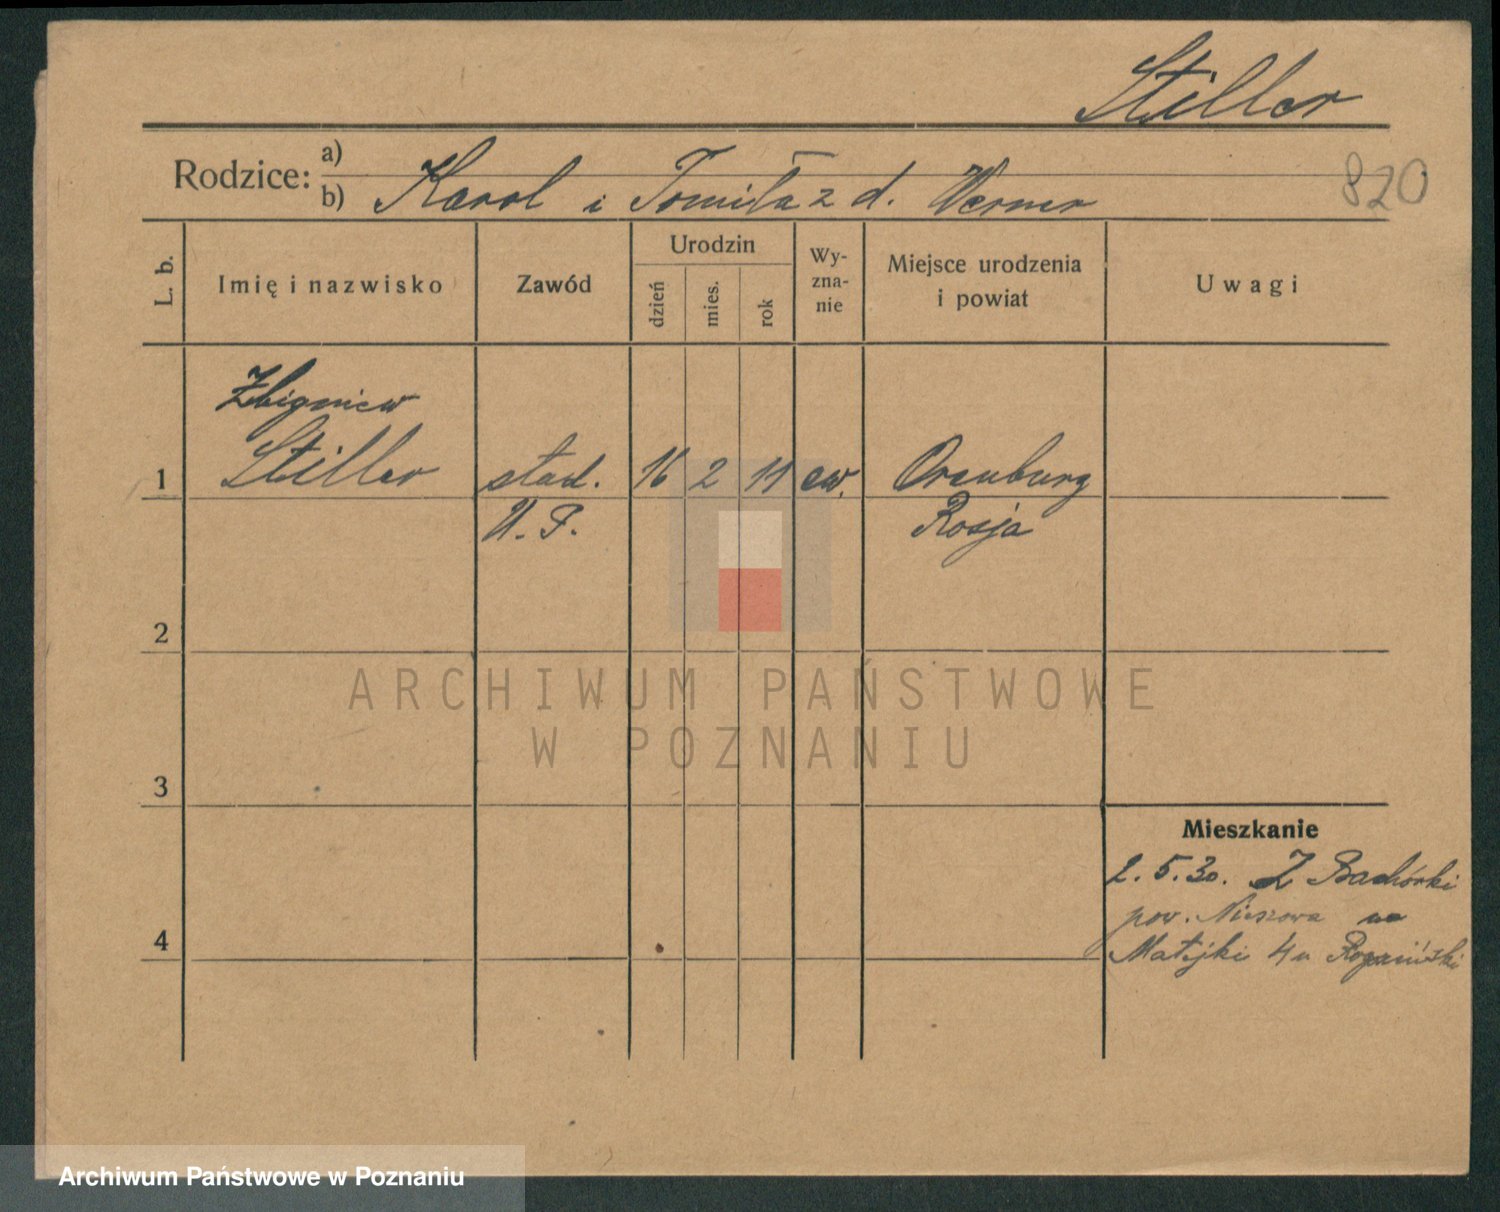 Stiller
Rodzice: a)
b) Karol i Tomiła z d. Werner
820
L. b.
Imię i nazwisko
Zawód
Urodzin
dzień
mies.
rok
Wy-
zna-
nie
Miejsce urodzenia
i powiat
Uwagi
Zbigniew
1 Stiller stud. 16 2 11 ew. Orenburg
U. P. Rosja
2
3
4
Mieszkanie
2. 5. 30. Z Bachórki
pow. Nieszawa na
Matejki 4 u
ARCHIWUM PAŃSTWOWE
W POZNANIU
Archiwum Państwowe w Poznaniu